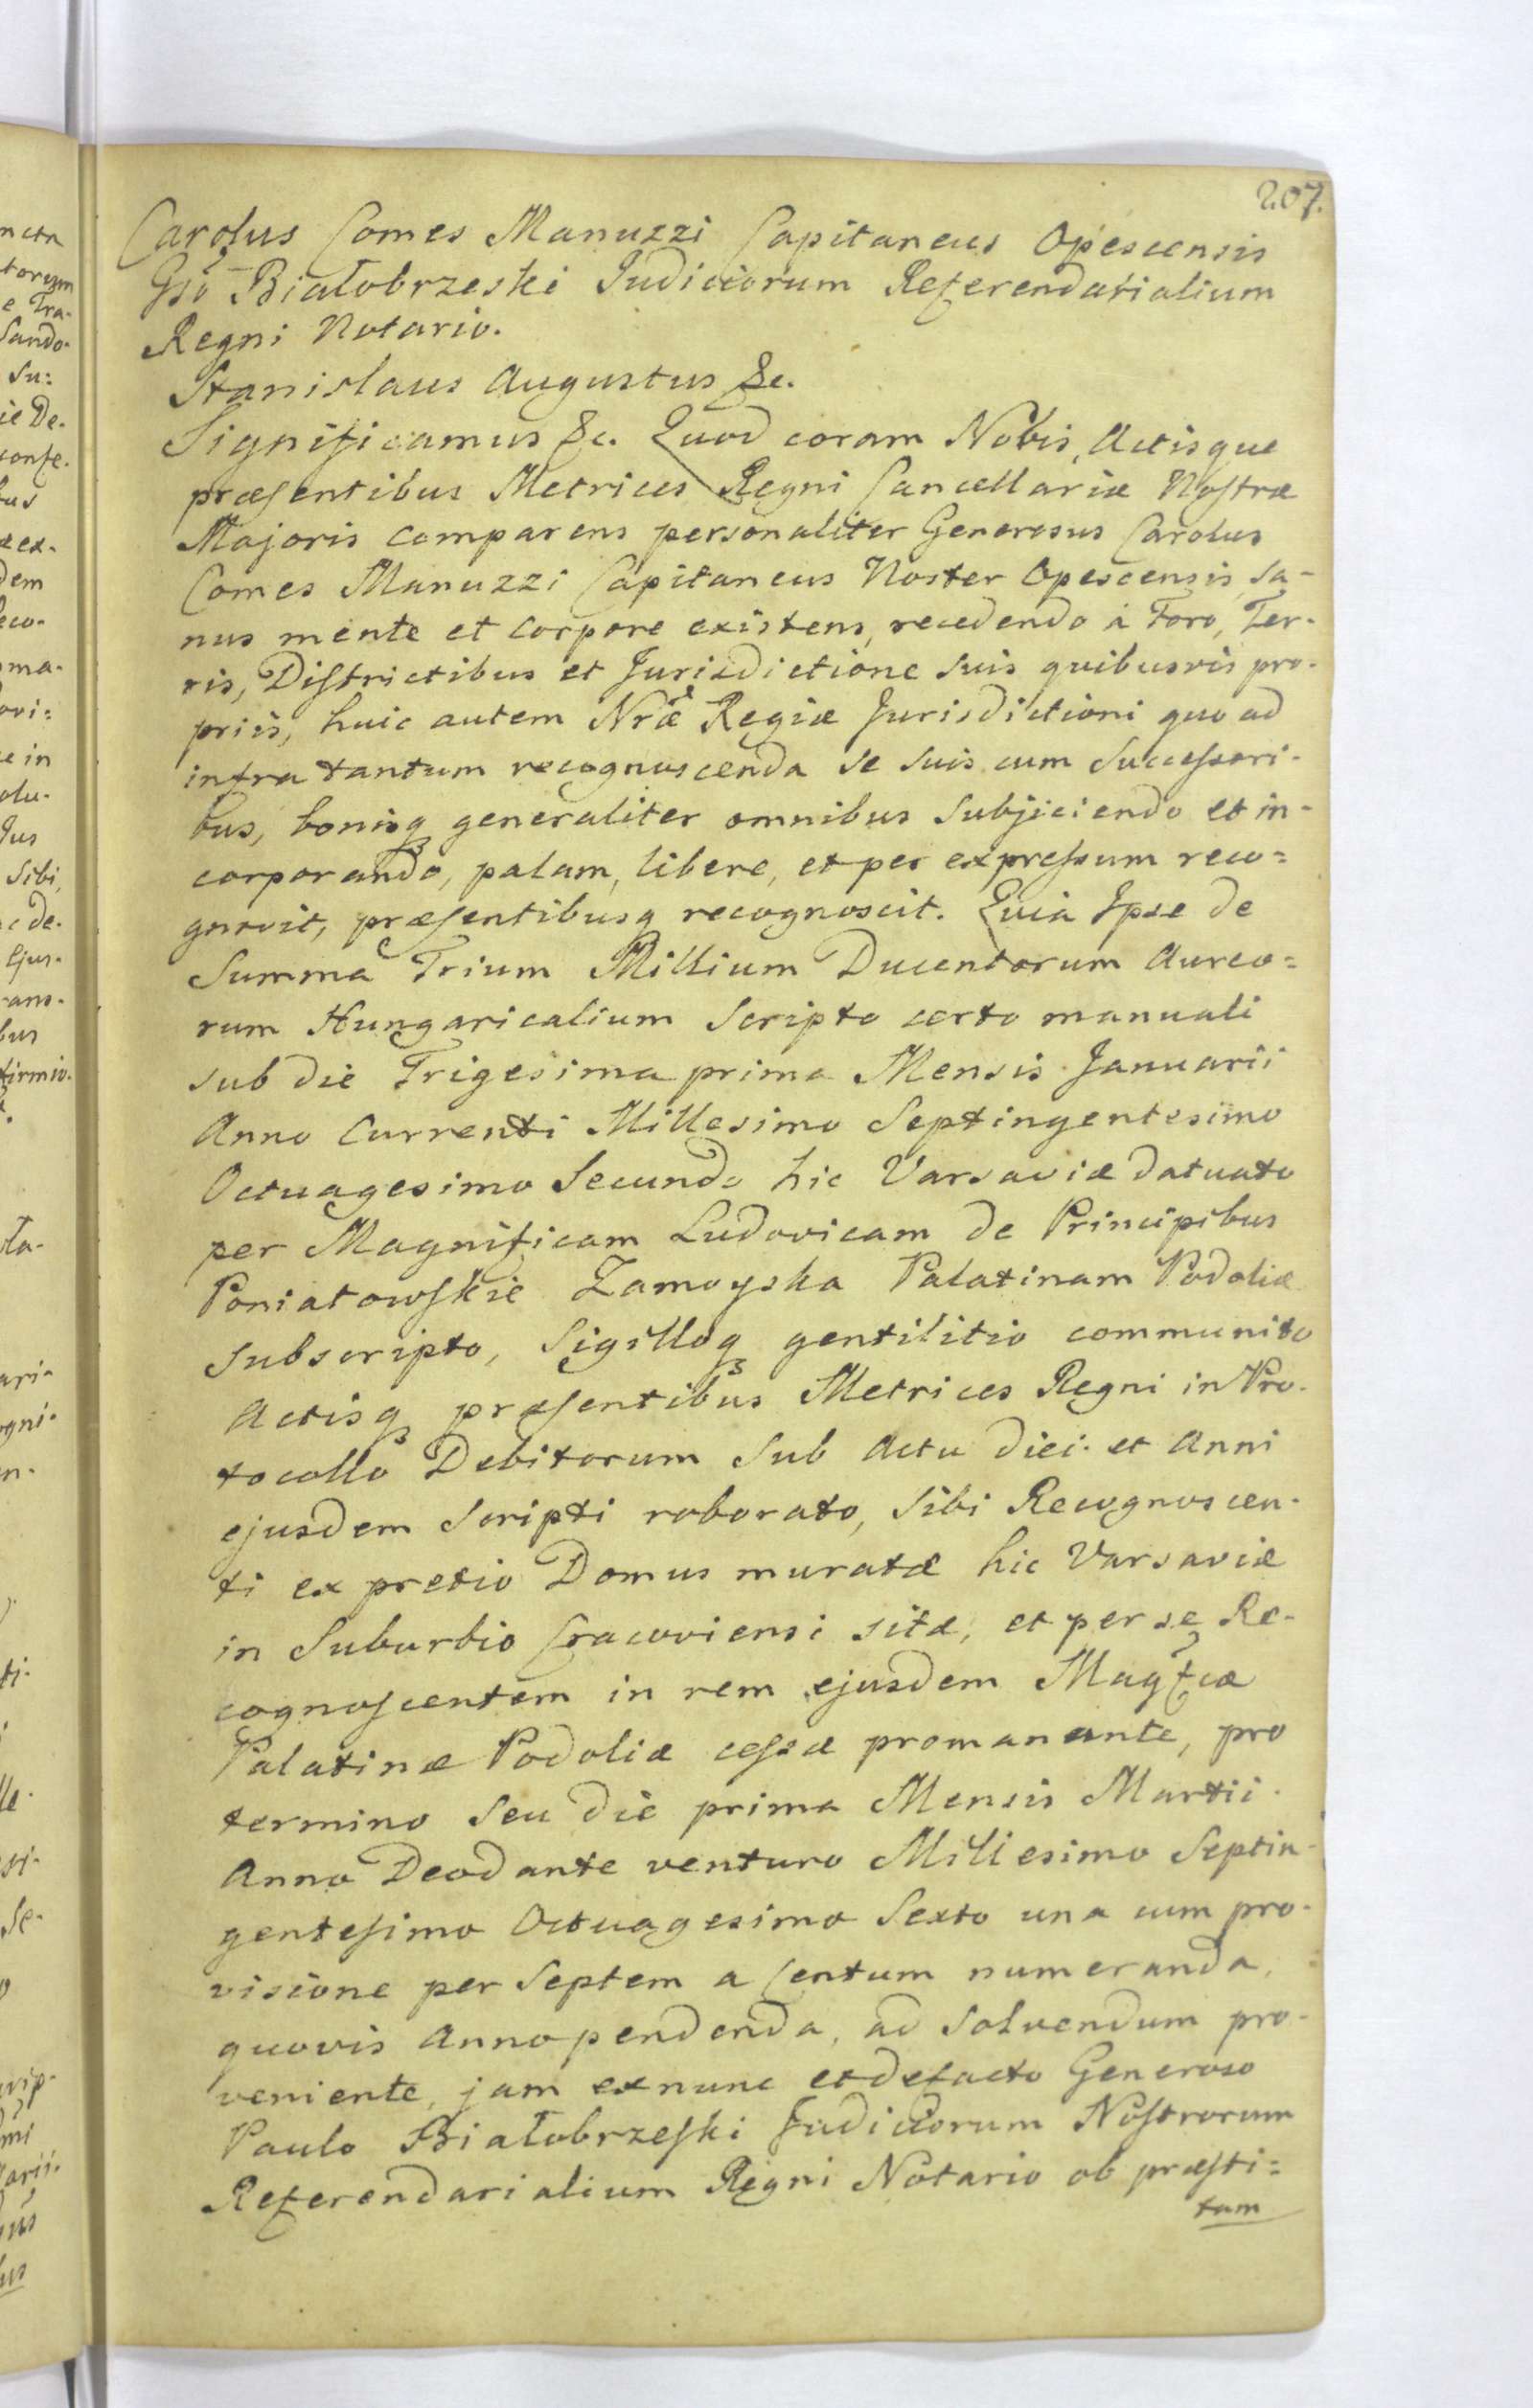 207.
Carolus Comes Manuzzi Capitaneus Opescensis
Gso Białobrzeski Judiciorum Referendarialium
Regni Notario.
Stanislaus Augustus &c.
Significamus &c. Quod coram Nobis, Actisque
præsentibus Metrices Regni Cancellariæ Nostræ
Majoris comparens personaliter Generosus Carolus
Comes Manuzzi Capitaneus Noster Opescensis, sa-
nus mente et corpore existens, recedendo à Foro, Ter-
ris, Districtibus et Jurisdictione suis quibusvis pro-
priis, huic autem Nræ Regiæ Jurisdictioni quo ad
infra tantum recognoscenda se suis cum Successori-
bus, bonisq generaliter omnibus Subjiciendo et in-
corporando, palam, libere, et per expressum reco=
gnovit, præsentibusq recognoscit. Quia Ipse de
Summa Trium Millium Ducentorum Aureo=
rum Hungaricalium Scripto certo manuali
sub die Trigesima prima Mensis Januarii
Anno Currenti Millesimo Septingentesimo
Octuagesimo Secundo hic Varsaviæ datuato
per Magnificam Ludovicam de Principibus
Poniatowskie Zamoyska Palatinam Podoliæ
subscripto, Sigilloq gentilitio communito
Actisq præsentibus Metrices Regni in Pro-
tocollo Debitorum Sub Actu diei et Anni
ejusdem Scripti roborato, Sibi Recognoscen-
ti ex pretio Domus muratæ hic Varsaviæ
in Suburbio Cracoviensi sitæ, et per se Re-
cognoscentem in rem ejusdem Magfcæ
Palatinæ Podoliæ cessæ promanante, pro
termino seu die prima Mensis Martii
Anno Deodante venturo Millesimo Septin-
gentesimo Octuagesimo Sexto una cum pro-
visione per Septem a Centum numeranda,
quovis Anno pendenda, ad Solvendum pro-
veniente, jam exnunc et defacto Generoso
Paulo Białobrzeski Judiciorum Nostrorum
Referendarialium Regni Notario ob præsti=
tam